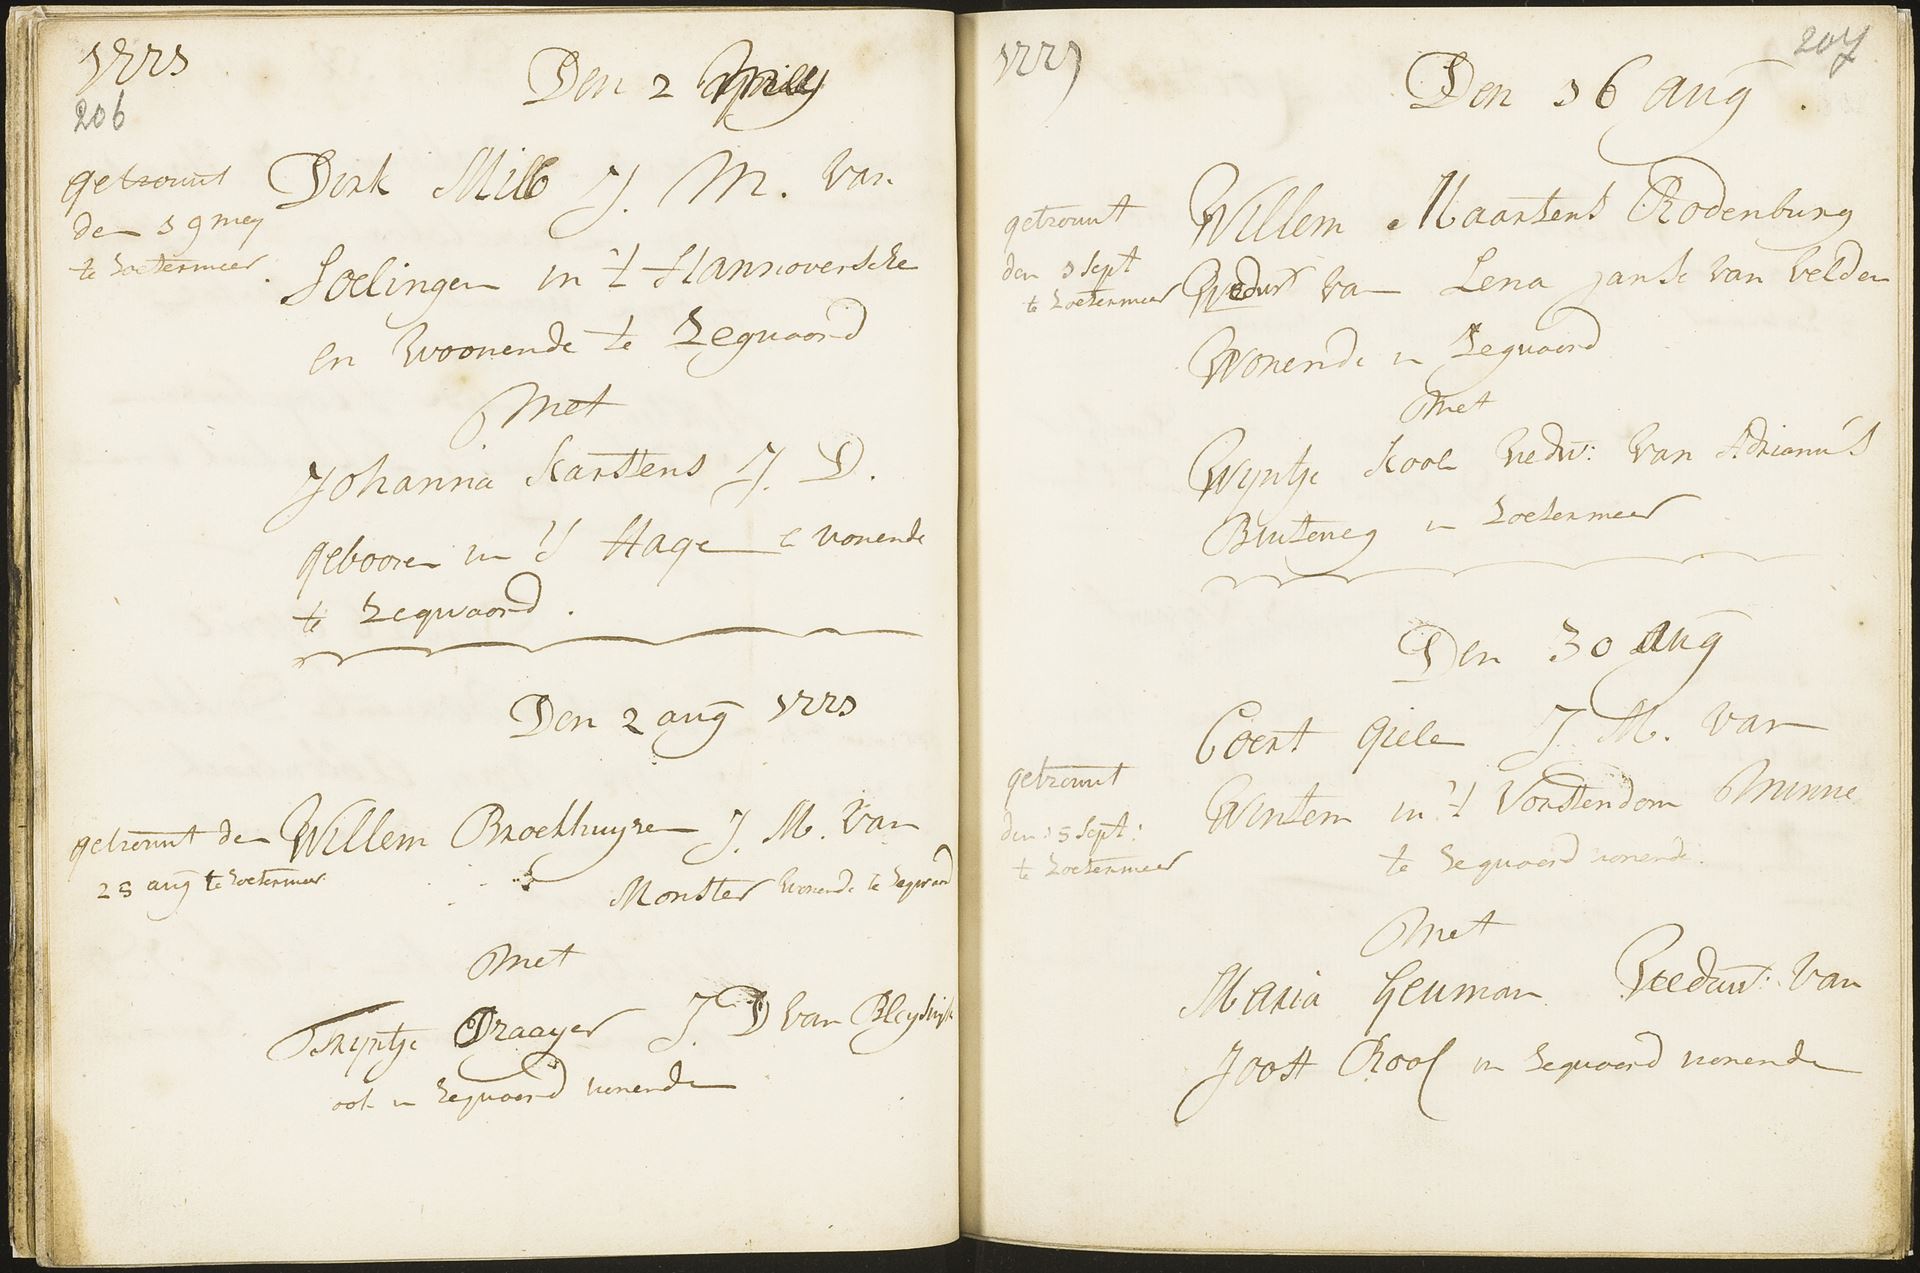 1771
206
Den 2 Mey
getrouwt
den 19 mey
te Zoetermeer
Dirk Mill J. M. van
Soelingen in 't Hannoversche
en Woonende te Zegwaard
Met
Johanna Karstens J. D.
gebooren in 's Hage e wonende
te Zegwaard.
Den 2 aug 1771
getrouwt den
25 aug te Zoetermeer
Willem Broekhuyzen J. M. van
Monster wonende te Zegwaard
Met
Tryntje Draayer J D van Bleyswyk
ook in Zegwaard wonende
1771
207
Den 16 aug
getrouwt
den 1 Sept
te Zoetermeer
Willem Maartens Rodenburg
Weduw van Lena Janse van Velden
Wonende in Zegwaard
Met
Wyntje Kool Wedw: van Adrianus
Buiteweg in Zoetermeer
Den 30 Aug
getrouwt
den 15 Sept:
te Zoetermeer
Coert Giele J. M. van
Wintem in 't Vorstendom Minne
te Zegwaard wonende.
Met
Maria Heuman Weduw: van
Joost Rool in Zegwaard wonende